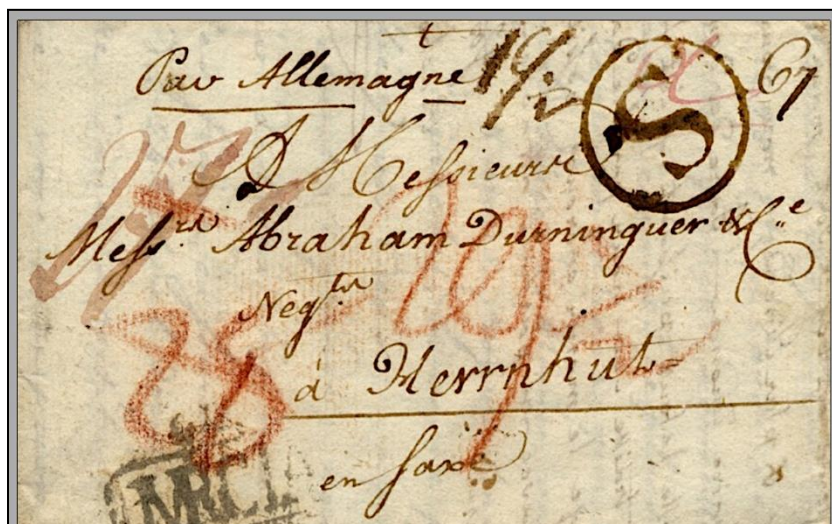 Par Allemagne
S
67
A Messieurs
Messrs Abraham Durninguer & Ce
Negts
à Herrnhut
en Saxe